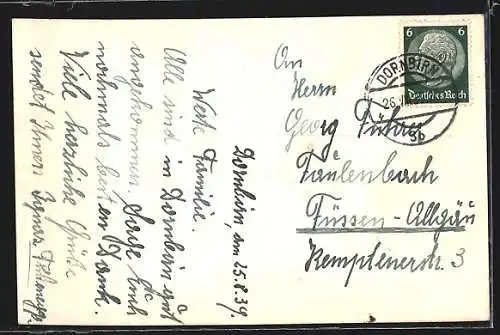 Dornbirn, am 25.8.39.
Werte Familie.
Alle sind in Dornbirn gut
angekommen. Sage noch
nochmals besten Dank.
Viele herzliche Grüße
sendet Ihnen
An
Herrn
Georg Führer
Faulenbach
Füssen-Allgäu
Kemptenerstr. 3
6 6
Deutsches Reich
DORNBIRN
26.
sb